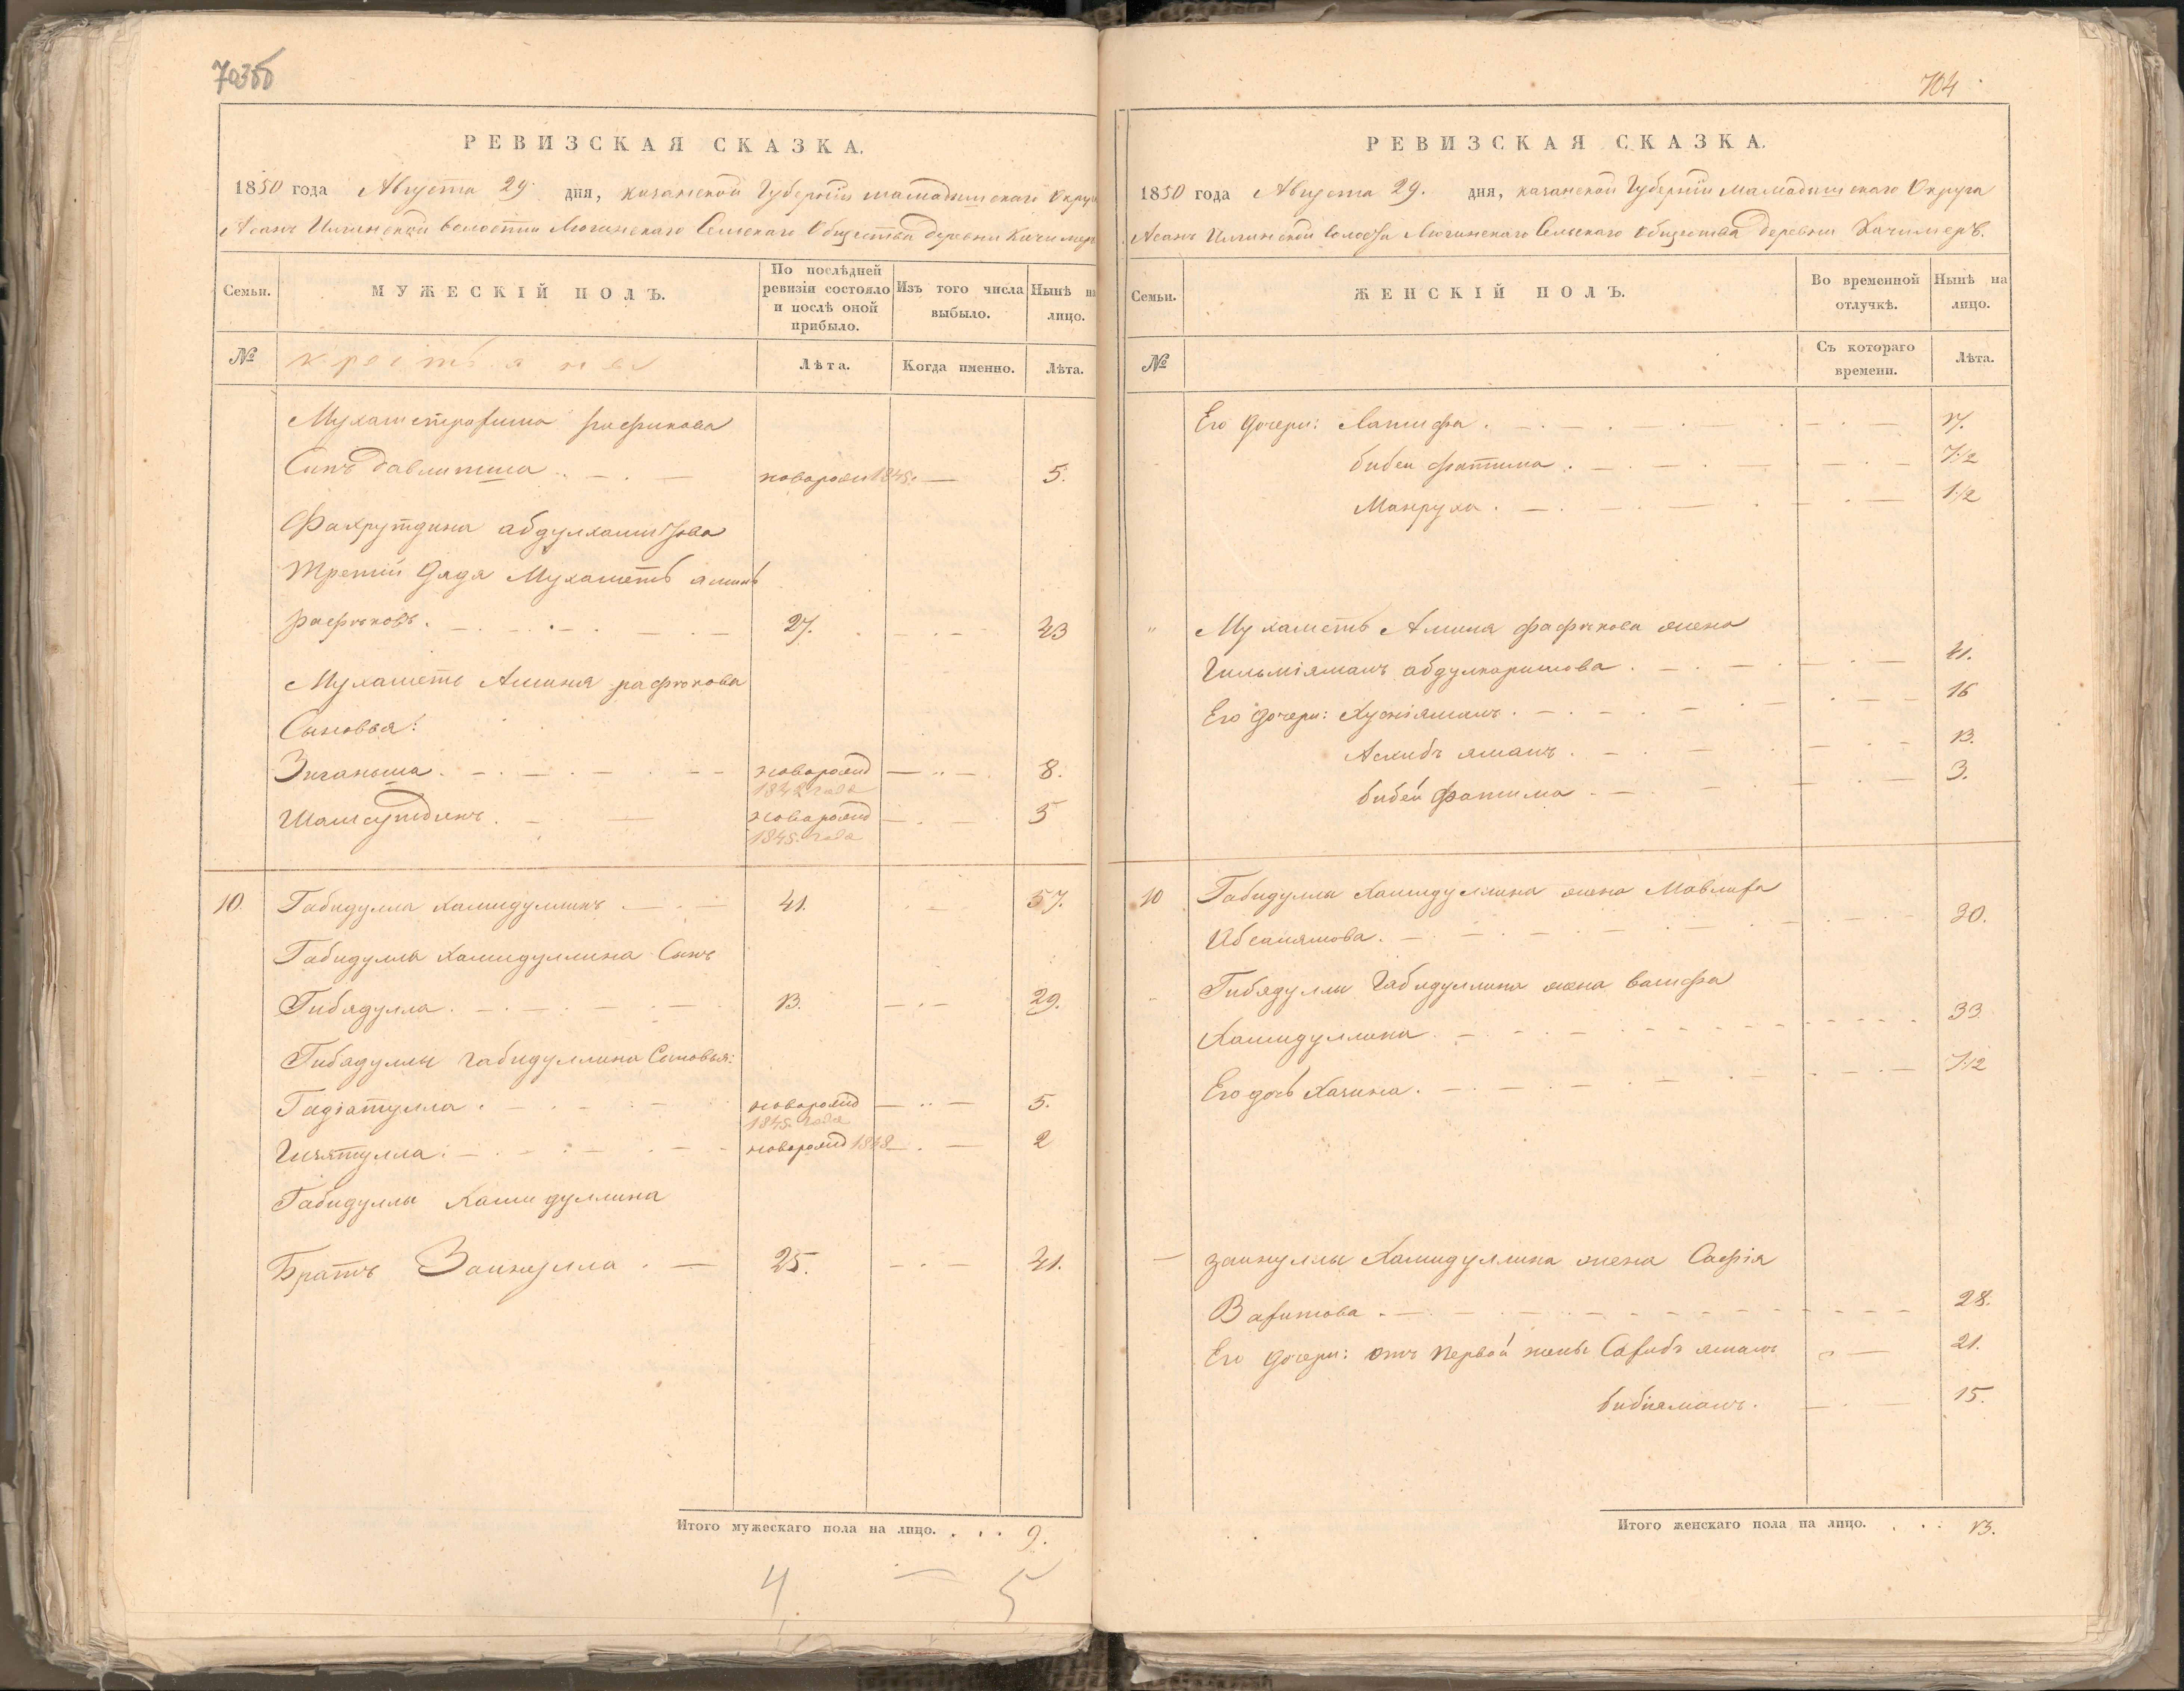 703об
РЕВИЗСКАЯ СКАЗКА.
1850 года Августа 29 дня, казанской Губерніи мамадышскаго Округа
Асанъ Илгинской волости Люгинскаго Сельскаго Общества деревни Качимеръ
Семьи.
МУЖЕСКІЙ ПОЛЪ.
По послѣдней ревизіи состояло и послѣ оной прибыло.
Изъ того числа выбыло.
Нынѣ на лицо.
№
крестьяне
Лѣта.
Когда именно.
Лѣта.
Мухаметрахима рафикова
Сынъ давлитша . . — . — новорожд 1845. — 5.
Фахрутдина абдулхамитова
Третій Дядя Мухаметъ аминъ
рафиковъ . — . — . — 27. — . — 43
Мухаметь Аминя рафикова
Сыновья:
Зиганьша . — . — . — новорожд 1842 года — . . — 8.
Шамсутдинъ . — . — новорожд 1845. года — . — 5
10. Габидулла хамидуллинъ . — . — 41. . — 57.
Габидуллы хамидуллина Сынъ
Гибядулла . — . — . — 13. — . — 29.
Гибядуллы габидуллина Сыновья:
Гадіатулла . — . — новорожд 1845. года — . . — 5.
Гизятулла : — . — новорожд 1848 — . — 2
Габидуллы Хамидуллина
Братъ Заинулла . — 25. — . — 41.
Итого мужескаго пола на лицо. . . . 9.
4 — 5
704
РЕВИЗСКАЯ СКАЗКА.
1850 года Августа 29. дня, казанской Губерніи мамадышскаго Округа
Асанъ Илгинской волости Люгинскаго Сельскаго Общества деревни Качимеръ.
Семьи.
ЖЕНСКІЙ ПОЛЪ.
Во временной отлучкѣ.
Нынѣ на лицо.
№
Съ котораго времени.
Лѣта.
Его дочери: Латифа . — . — . — 17.
бибеи фатима . — . — . — 7 1/2
Манруха . — . — . — 1 1/2
" Мухаметь Аминя рафикова жена
Гильміямалъ абдулкаримова . — . — 41.
Его дочери: Хусніямалъ . — . — 16
Асхибъ ямалъ . — . — 13.
бибеи фатима . — . — 3.
10 Габидуллы Хамидуллина жена Мавлифа
Ибсалямова . — . — . — 30.
Гибядуллы Габидуллина жена вашфа
Хамидуллина . — . — 33.
Его дочь Хазина . — . — 7/12
— заинуллы Хамидуллина жена Сафія
Вахитова . — . — 28.
Его дочери: отъ первой жены Сахибъ ямалъ — 21.
бибіямалъ . — . — 15.
Итого женскаго пола на лицо. . . . 13.